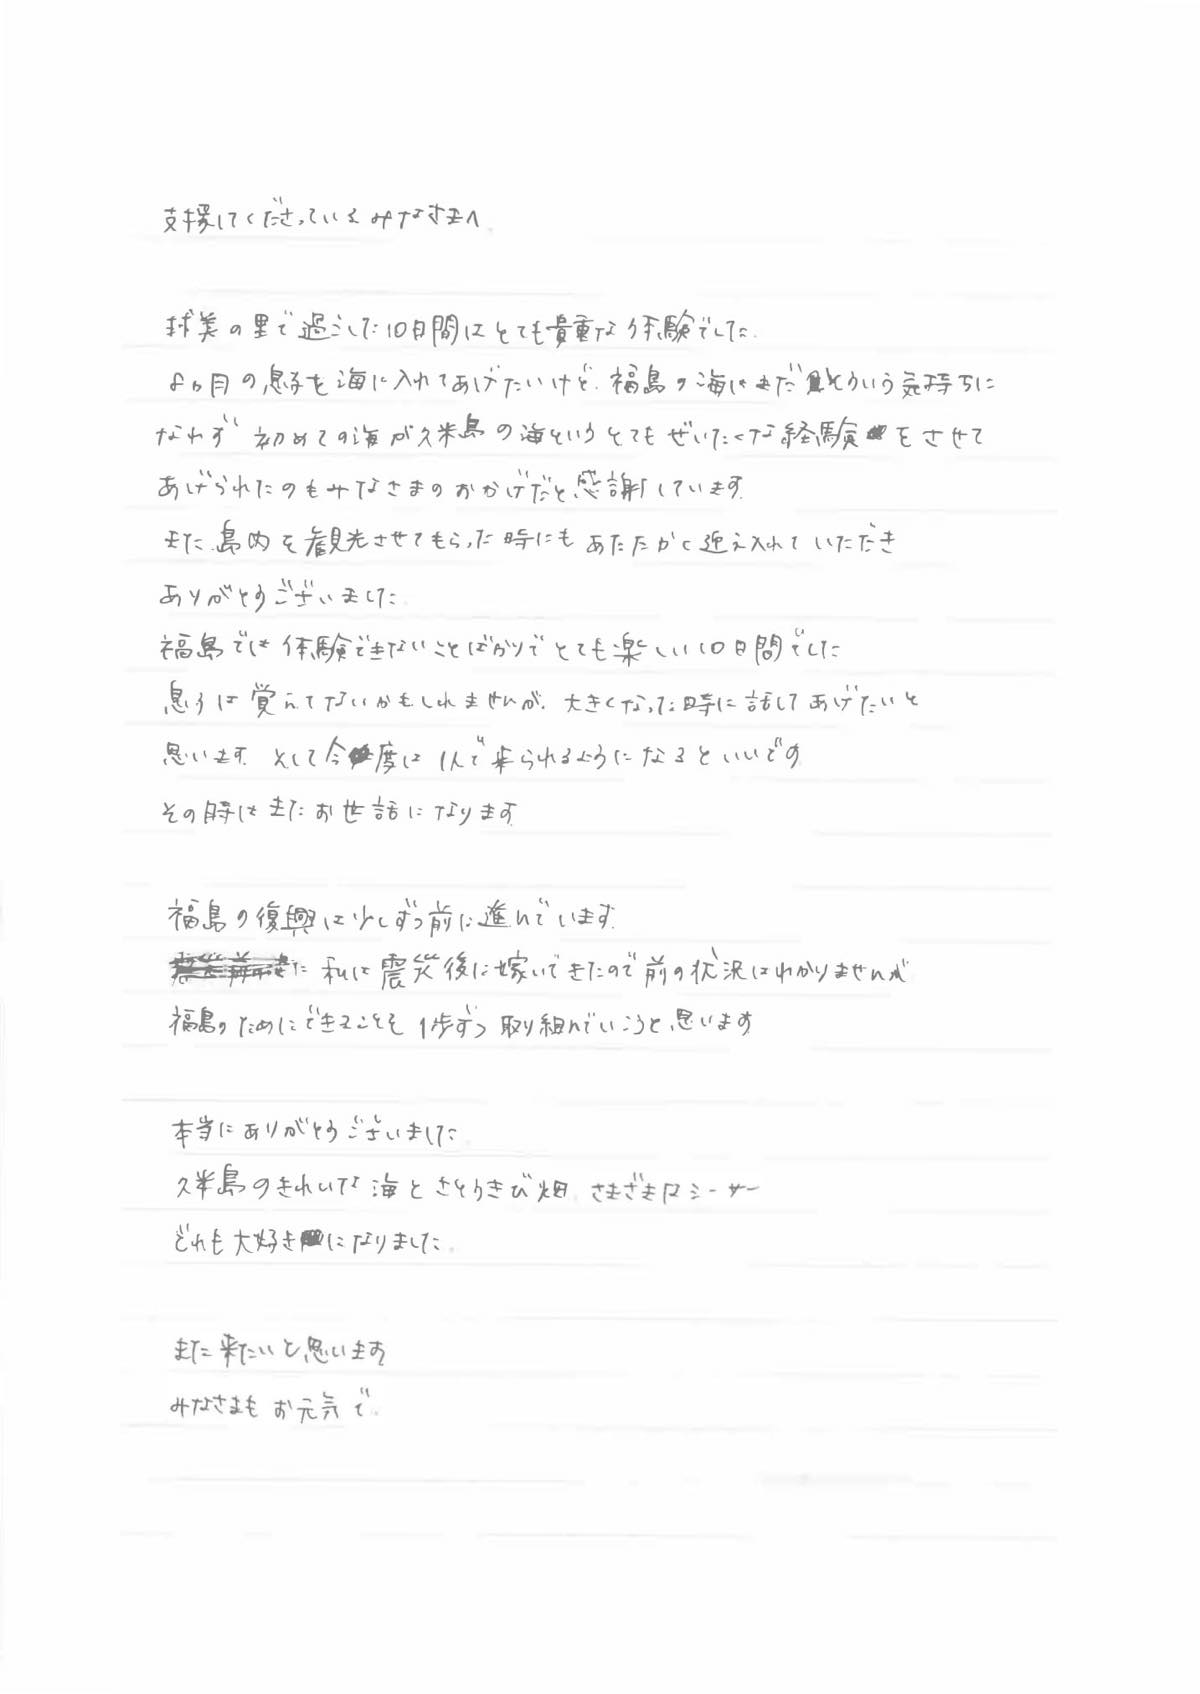 支援してくださっているみなさまへ
球美の里で過ごした10日間はとても貴重な体験でした。
8ヵ月の息子を海に入れてあげたいけど、福島の海はまだそういう気持ちに
なれず 初めての海が久米島の海というとてもぜいたくな経験をさせて
あげられたのもみなさまのおかげだと感謝しています。
また、島内を観光させてもらった時にもあたたかく迎え入れていただき
ありがとうございました。
福島では体験できないことばかりでとても楽しい10日間でした
息子は覚えてないかもしれませんが、大きくなった時に話してあげたいと
思います。そして今度は1人で来られるようになるといいです
その時はまたお世話になります。
福島の復興は少しずつ前に進んでいます。
私は震災後に嫁いできたので前の状況はわかりませんが
福島のためにできることを1歩ずつ取り組んでいこうと思います
本当にありがとうございました。
久米島のきれいな海とさとうきび畑、さまざまなシーサー
どれも大好きになりました。
また来たいと思います
みなさまもお元気で。